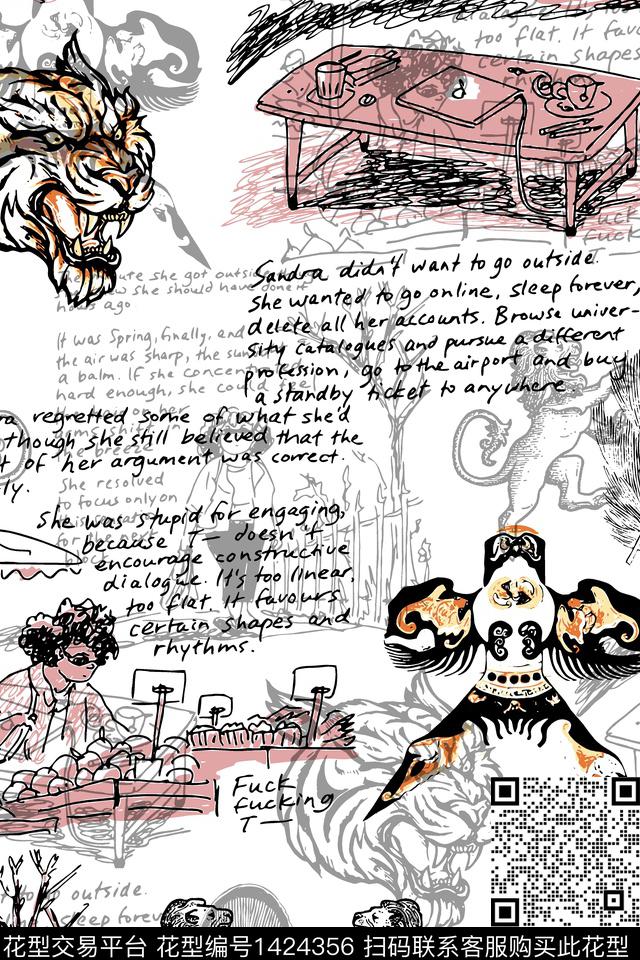 too flat. It favo
certain shapes
Sandra didn't want to go outside.
She wanted to go online, sleep forever,
delete all her accounts. Browse univer-
sity catalogues and pursue a different
profession, go to the airport and buy
a standby ticket to anywhere
she got outsi
she should have done it
hours ago
It was Spring, finally, and
the air was sharp, the sun
a balm. If she concen
hard enough, she could feel
ra regretted some of what she'd
though she still believed that the
t of her argument was correct.
ly.
the breeze
She resolved
to focus only on
She was stupid for engaging,
because T— doesn't
encourage constructive
dialogue. It's too linear,
too flat. It favours
certain shapes and
rhythms.
Fuck
fucking
T—
to outside.
sleep forev
花型交易平台 花型编号1424356 扫码联系客服购买此花型